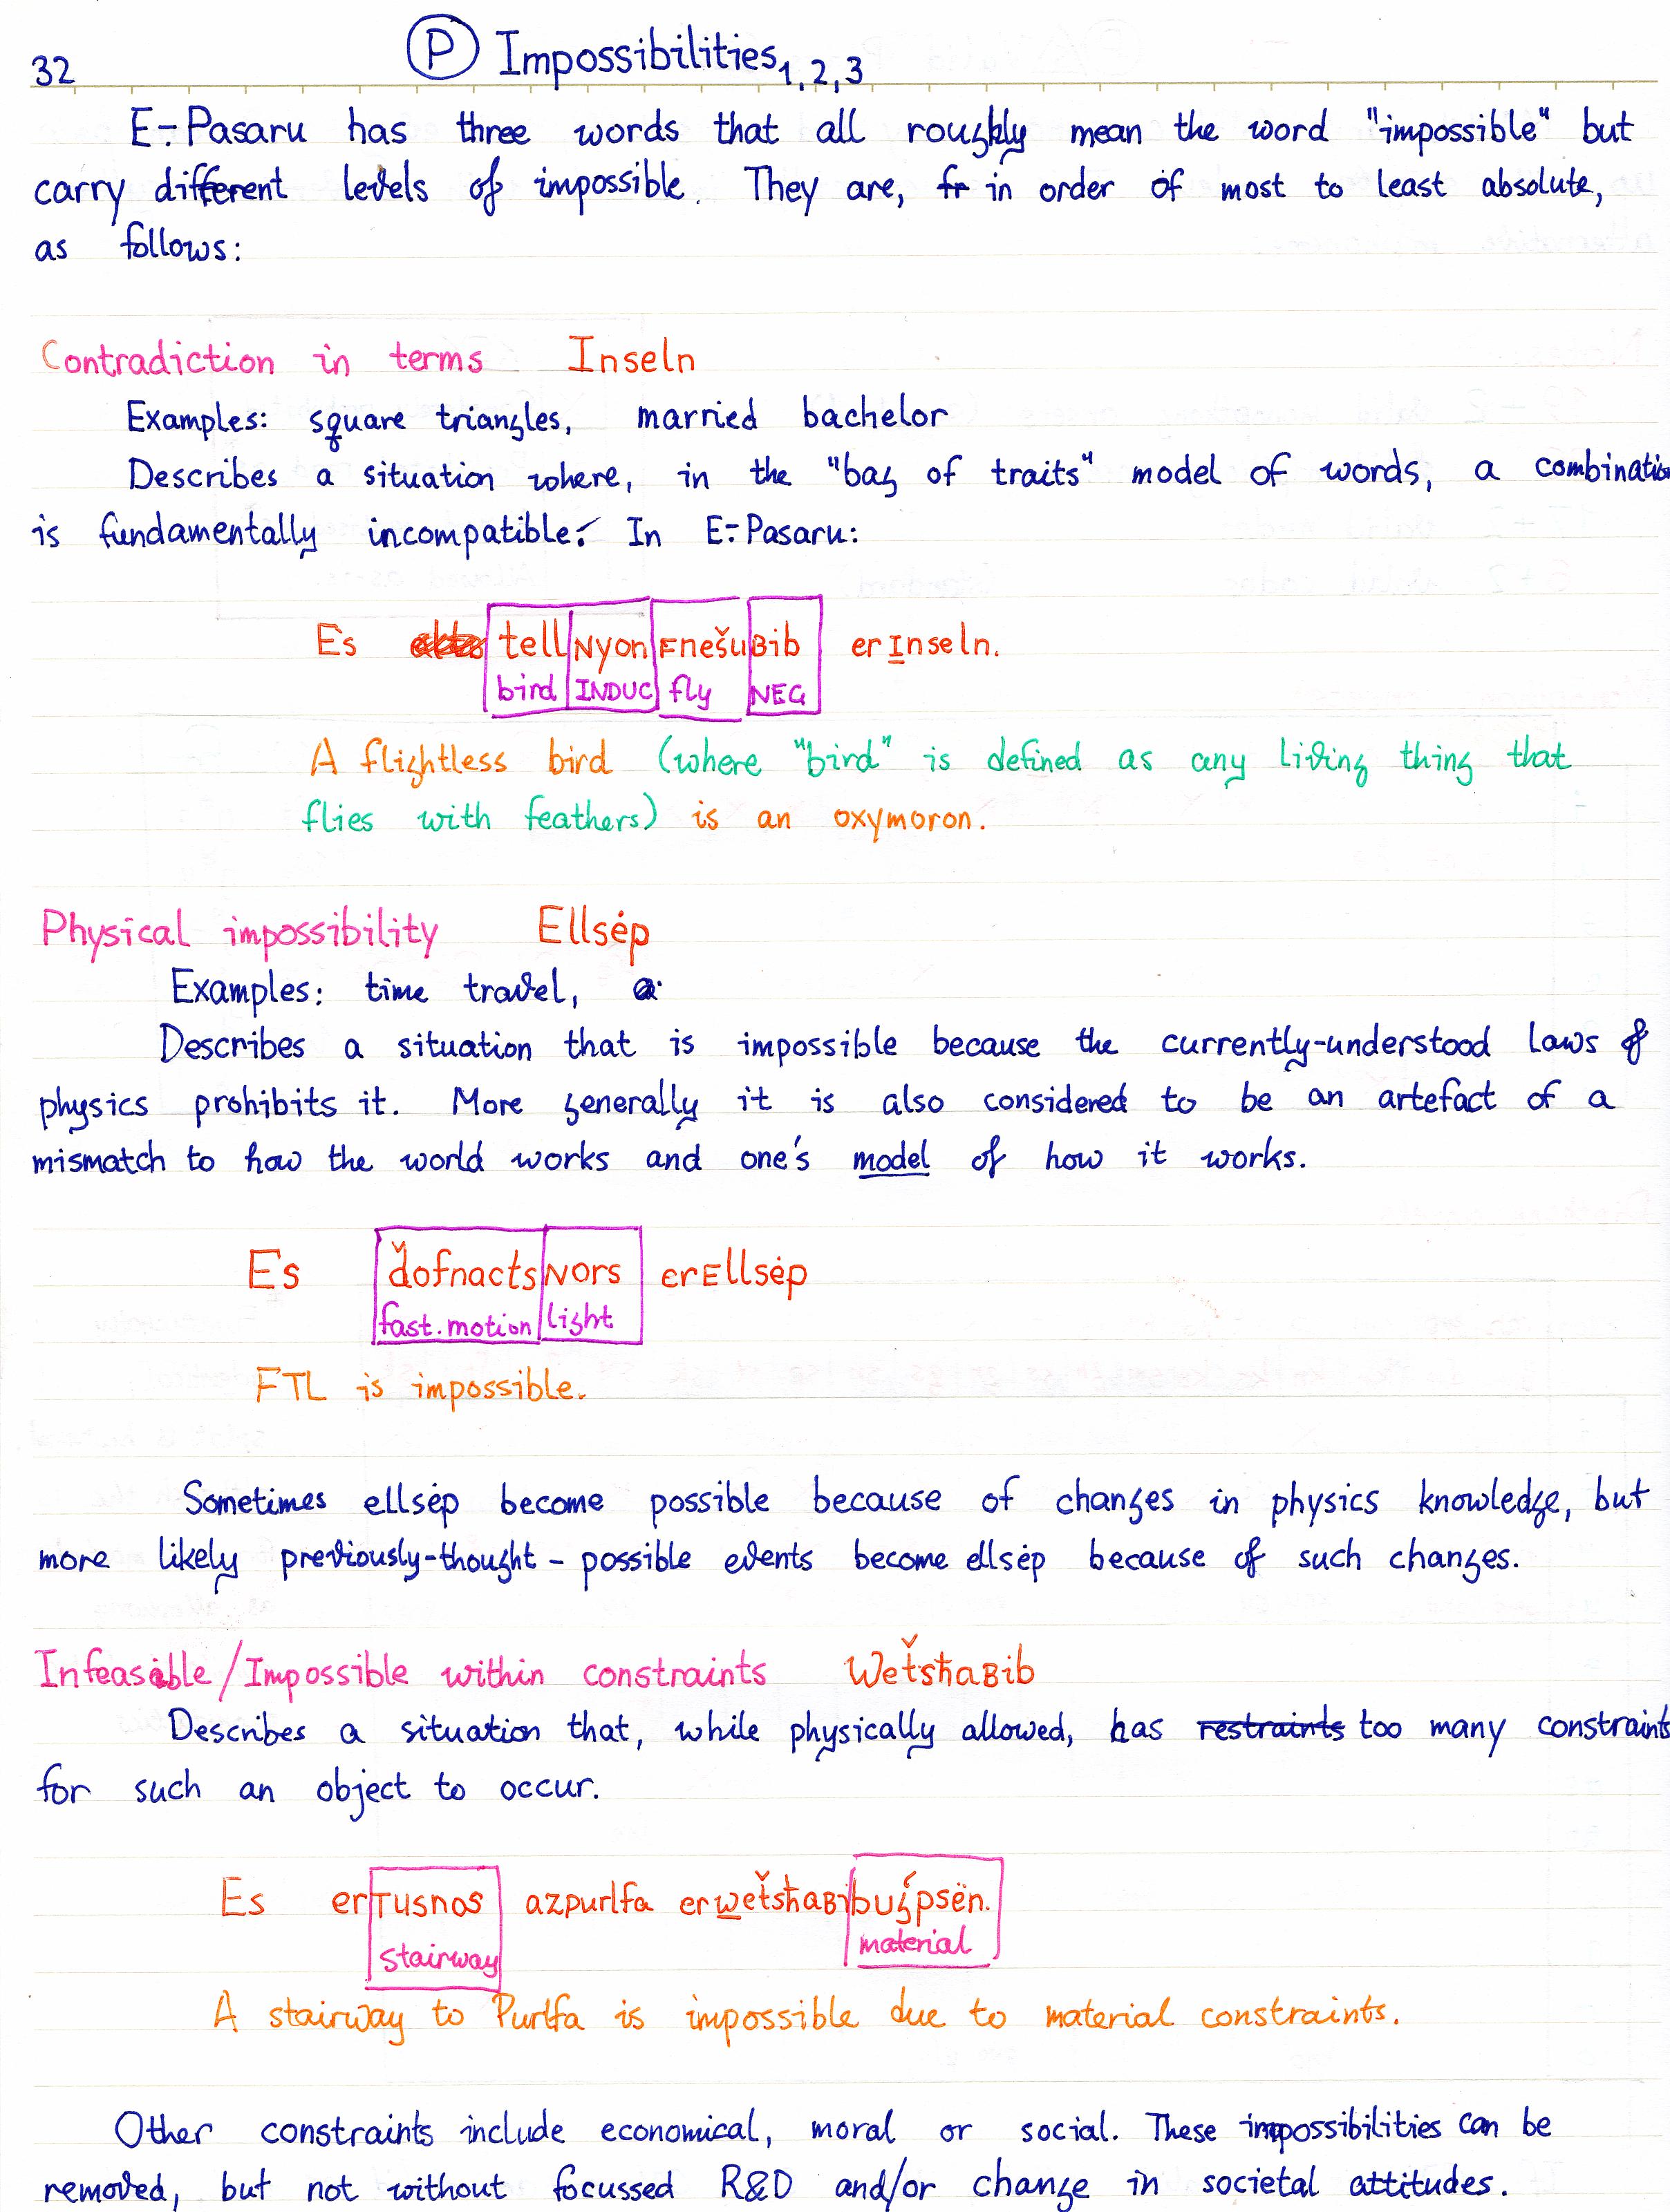 32
Ⓟ Impossibilities₁,₂,₃
E-Pasaru has three words that all roughly mean the word "impossible" but
carry different levels of impossible. They are, fr in order of most to least absolute,
as follows:
Contradiction in terms Inseln
Examples: square triangles, married bachelor
Describes a situation where, in the "bag of traits" model of words, a combination
is fundamentally incompatible. In E-Pasaru:
Es tell Nyon Fnešu Bib erInseln.
bird INDUC fly NEG
A flightless bird (where "bird" is defined as any living thing that
flies with feathers) is an oxymoron.
Physical impossibility Ellsėp
Examples: time travel,
Describes a situation that is impossible because the currently-understood laws of
physics prohibits it. More generally it is also considered to be an artefact of a
mismatch to how the world works and one's model of how it works.
Es ďofnacts Nors erEllsėp
fast.motion light
FTL is impossible.
Sometimes ellsėp become possible because of changes in physics knowledge, but
more likely previously-thought-possible events become ellsėp because of such changes.
Infeasible/Impossible within constraints WeťsħaBib
Describes a situation that, while physically allowed, has restraints too many constraints
for such an object to occur.
Es erTusnos azpurlfa erweťsħaBibbuʒ́psën.
stairway material
A stairway to Purlfa is impossible due to material constraints.
Other constraints include economical, moral or social. These impossibilities can be
removed, but not without focussed R&D and/or change in societal attitudes.